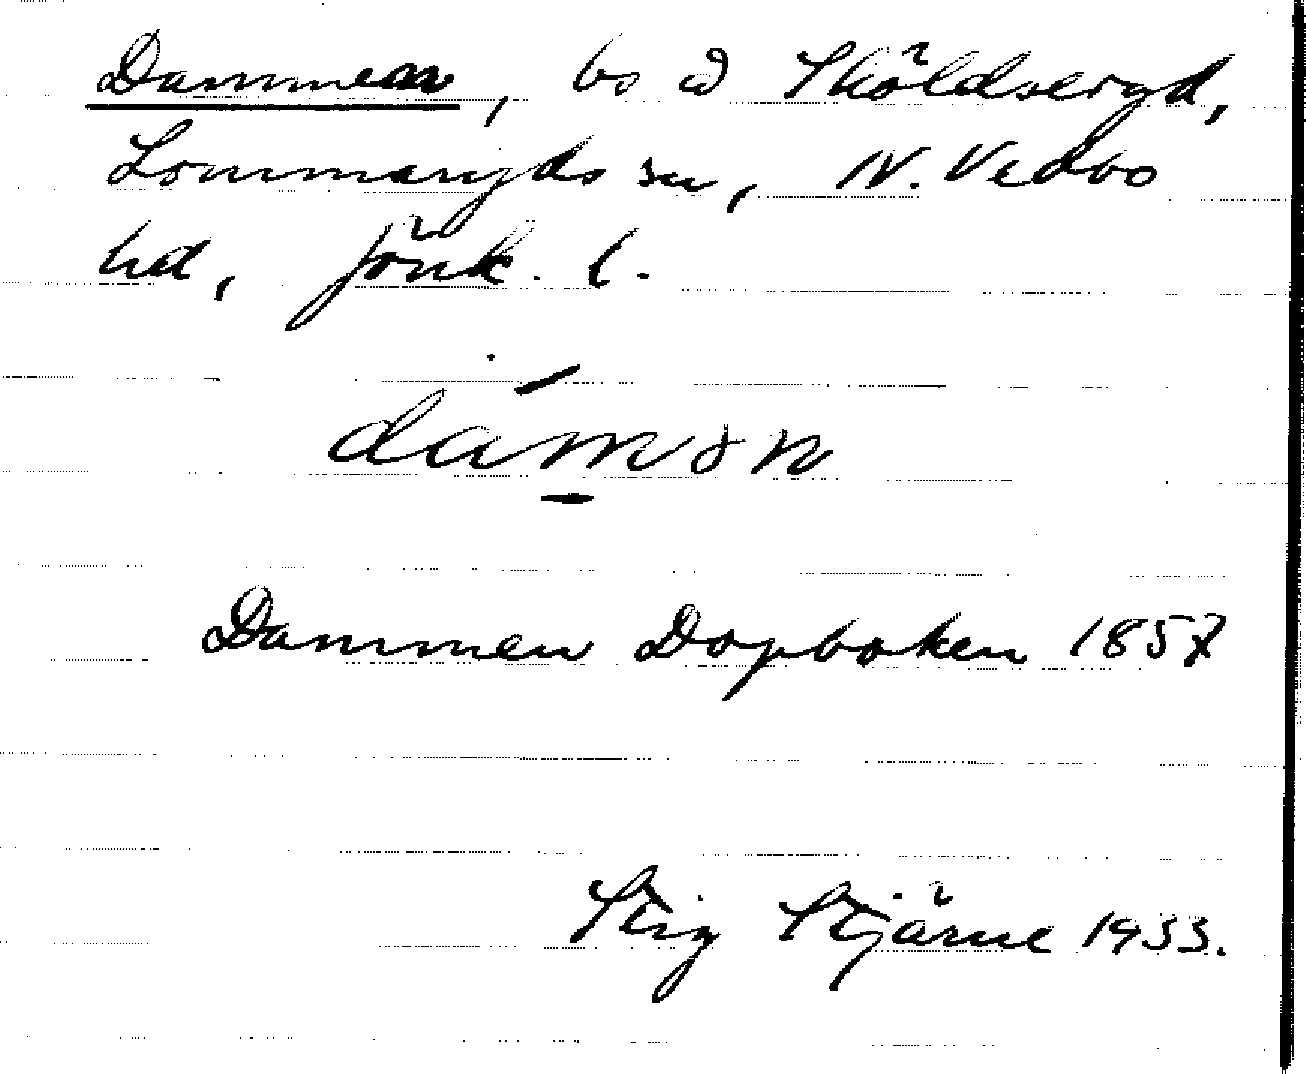 Dammen, bs å Sköldseryd,
Lommaryds sn, N. Vedbo
hd, Jönk. l.
dám̱ən
Dammen Dopboken 1857
Stig Stjärne 1933.